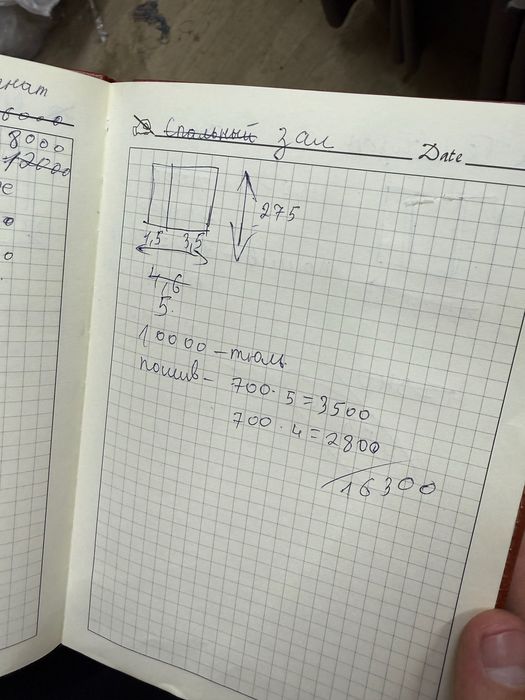 нат
6000
8000
12000
е
о
о
Спальный зал
Date
275
1,5 3,5
4,6
5.
10000 - тюль
пошив - 700 · 5 = 3500
700 · 4 = 2800
16300